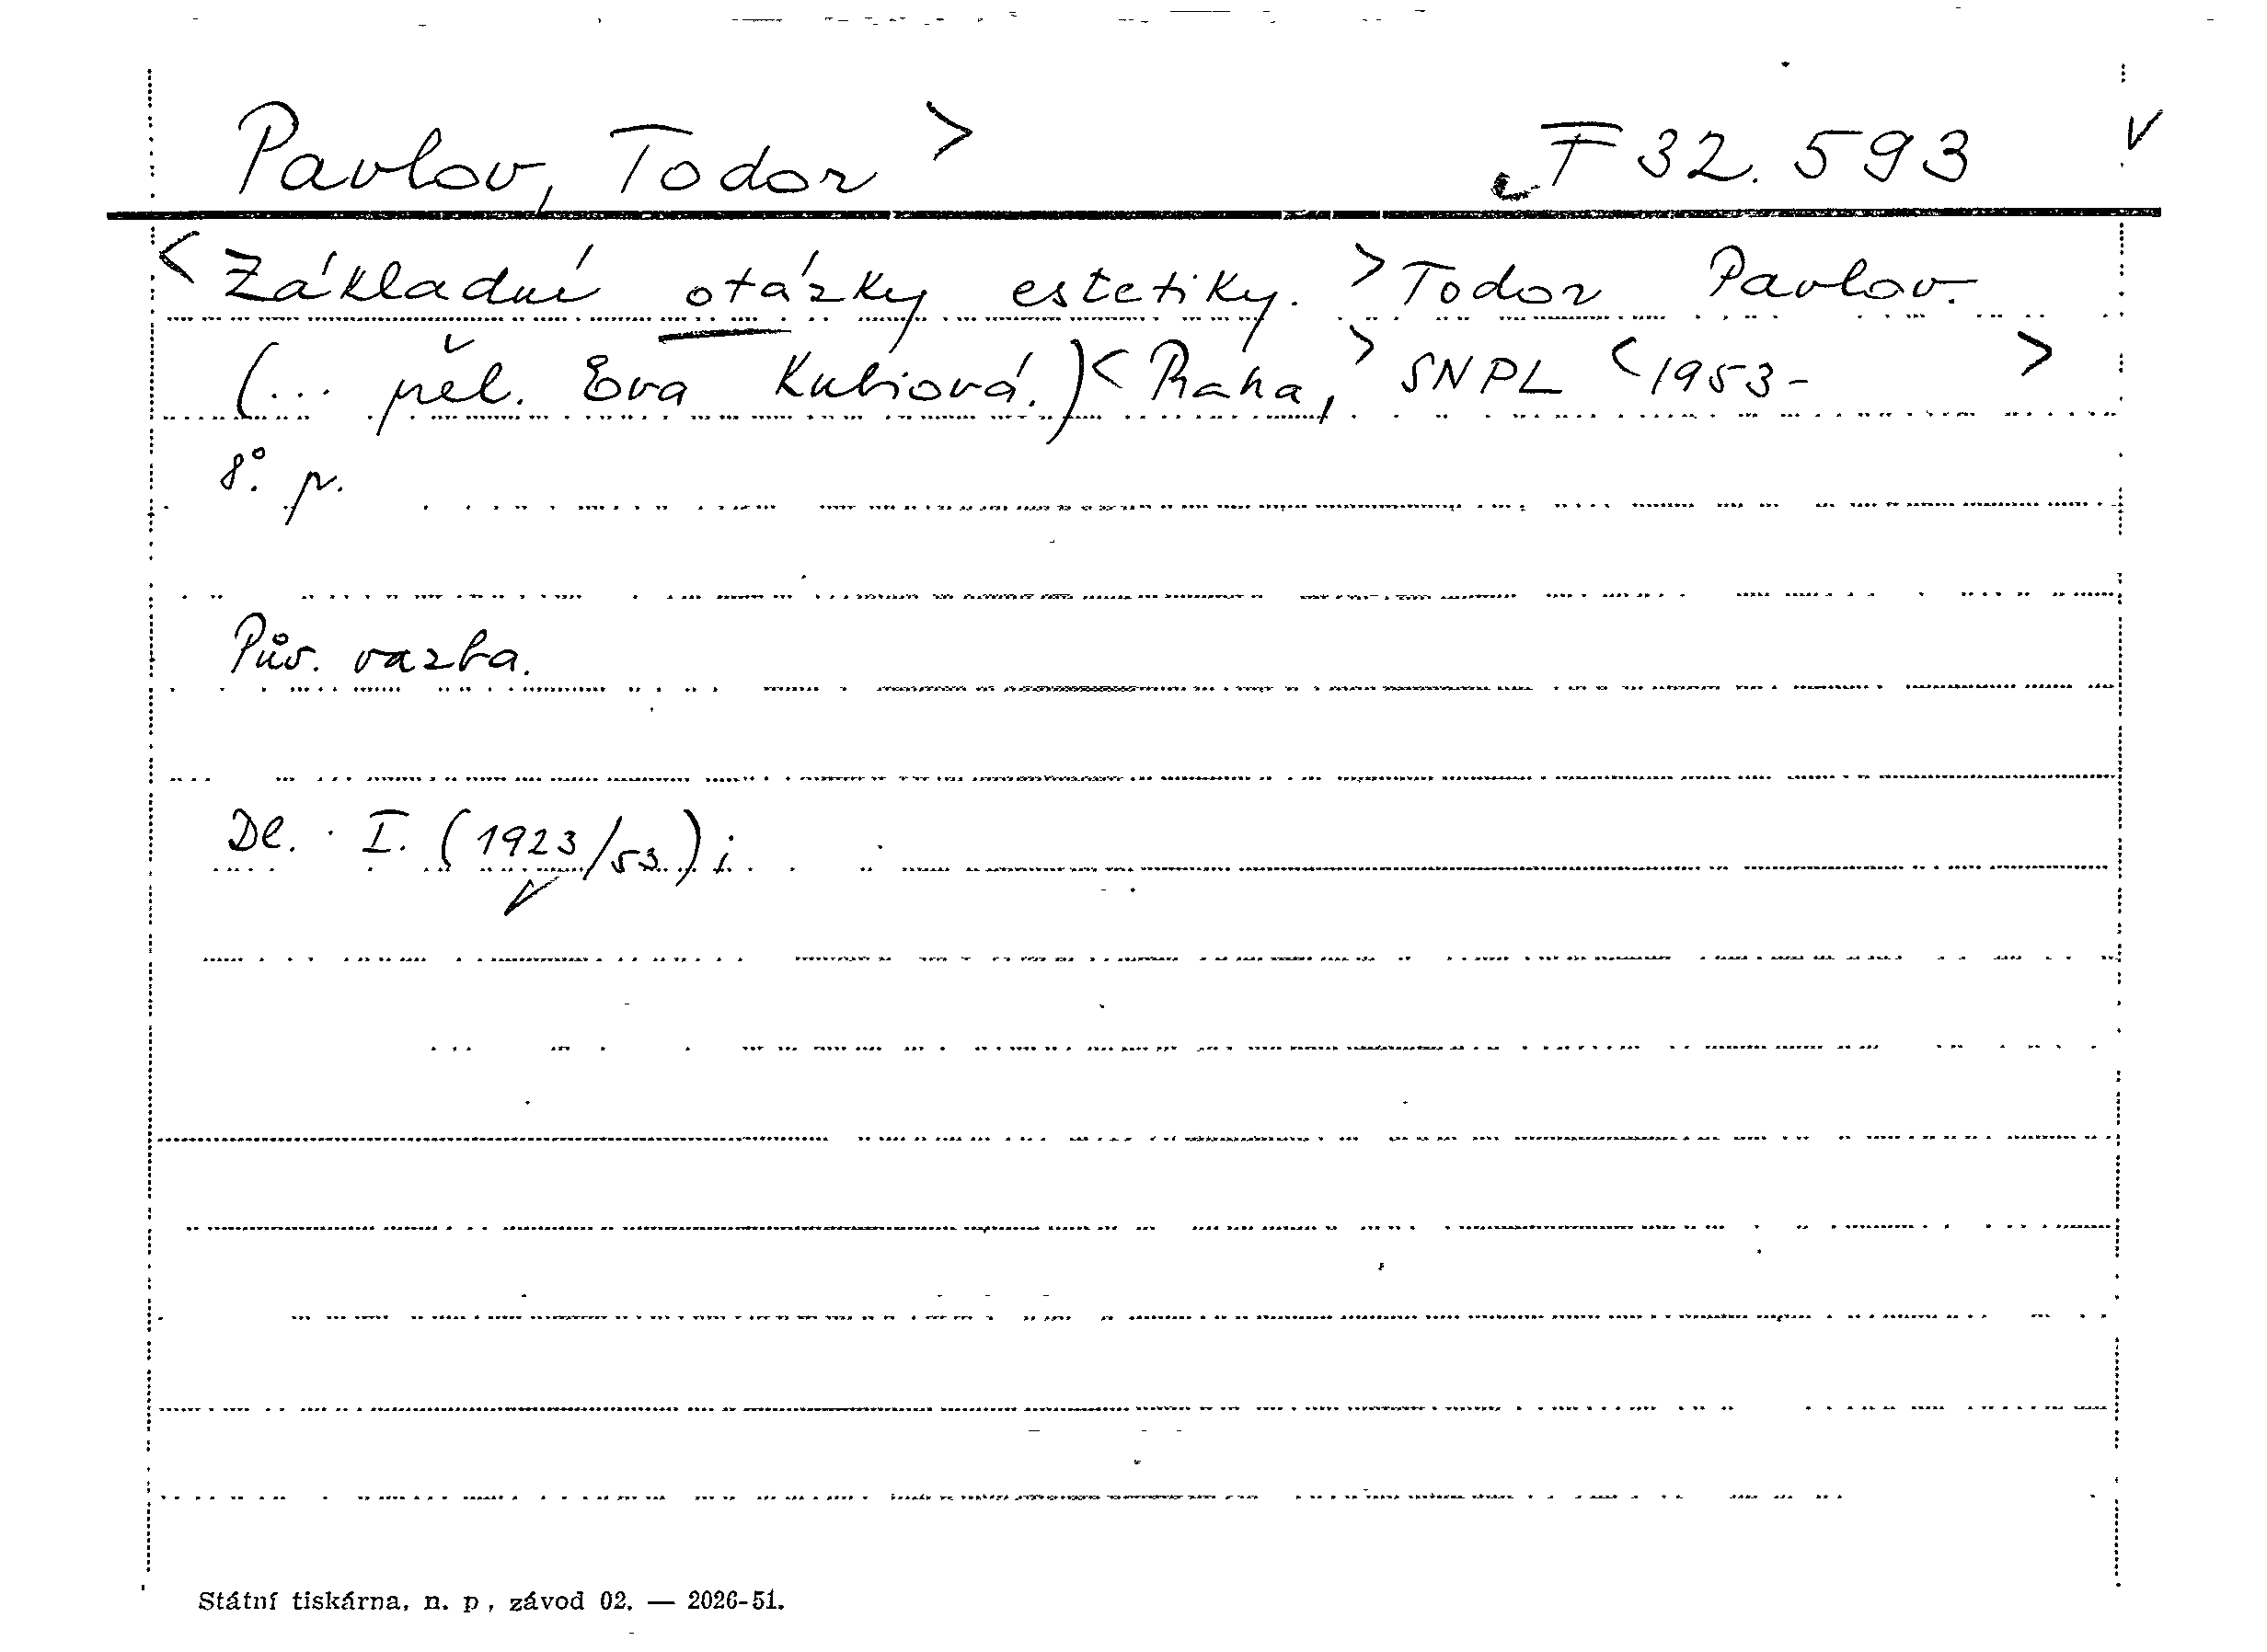 Pavlov, Todor > F 32.593 v
< Základní otázky estetiky. > Todor Pavlov.
(... přel. Eva Kubiová.) < Praha, > SNPL < 1953- >
8°. p.
Pův. vazba.
Dl. I. (1923/53.) i.
Státní tiskárna, n. p., závod 02. — 2026-51.